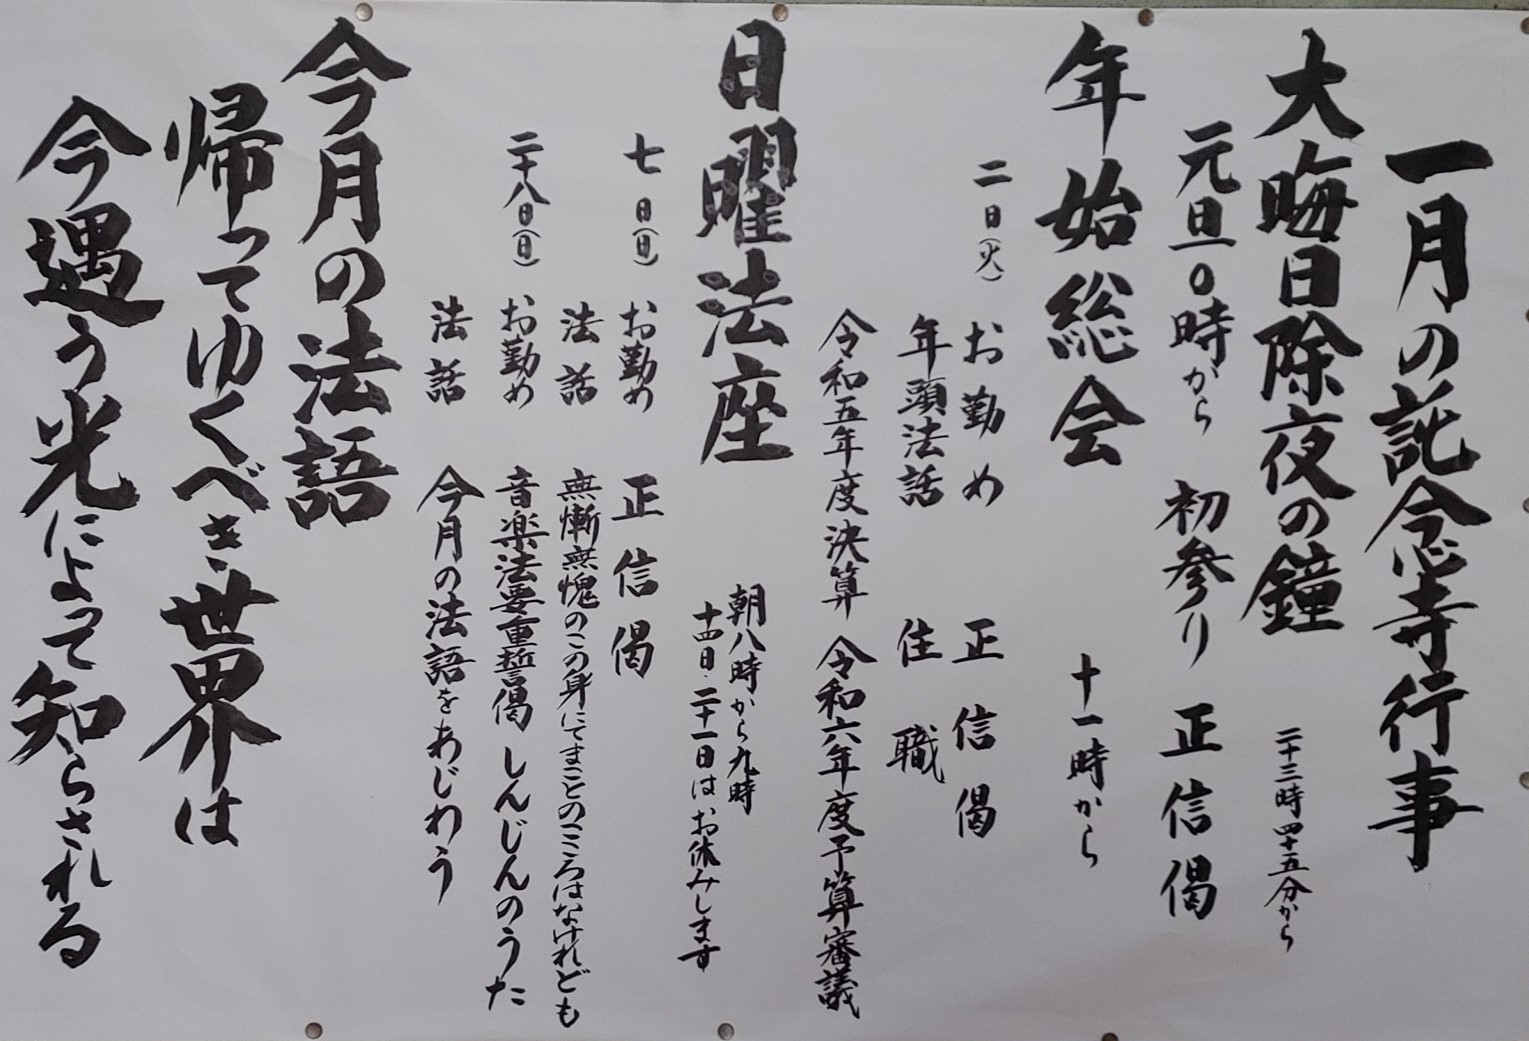 一月の託念寺行事
大晦日除夜の鐘 二十三時四十五分から
元旦〇時から 初参り 正信偈
年始総会 十一時から
二日(火) お勤め 正信偈
年頭法話 住職
令和五年度決算 令和六年度予算審議
日曜法座 朝八時から九時
十四日・二十一日はお休みします
七日(日) お勤め 正信偈
法話 無慚無愧のこの身にてまことのこころはなけれども
二十八日(日) お勤め 音楽法要重誓偈 しんじんのうた
法話 今月の法語をあじわう
今月の法語
帰ってゆくべき世界は
今遇う光によって知らされる